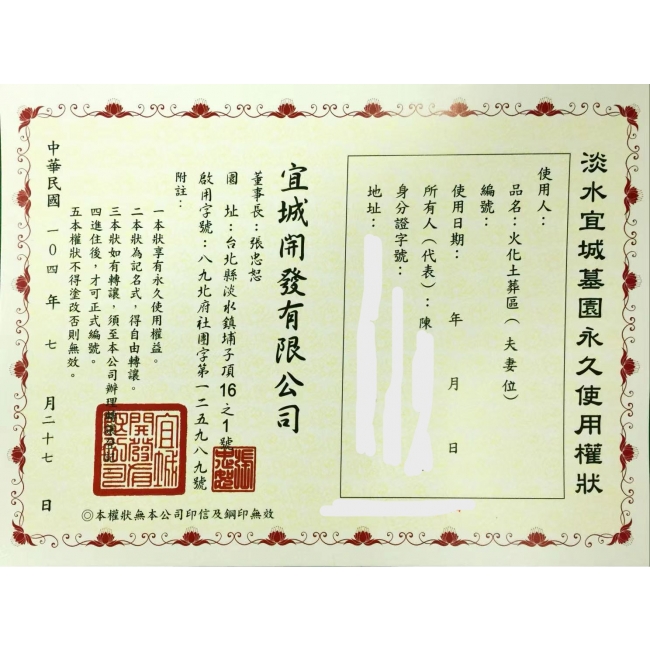 淡水宜城墓園永久使用權狀
使用人：
品名：火化土葬區（夫妻位）
編號：
使用日期：　年　月　日
所有人（代表）：陳
身分證字號：
地址：
宜城開發有限公司
董事長：張忠恕
園　址：台北縣淡水鎮埔子頂16之1號
啟用字號：八九北府社團字第一二五九八九號
附註：
一本狀享有永久使用權益。
二本狀為記名式，得自由轉讓。
三本狀如有轉讓，須至本公司辦理
四進住後，才可正式編號。
五本權狀不得塗改否則無效。
中華民國一〇四年七月二十七日
宜城開發有限公司
張忠恕
◎本權狀無本公司印信及鋼印無效